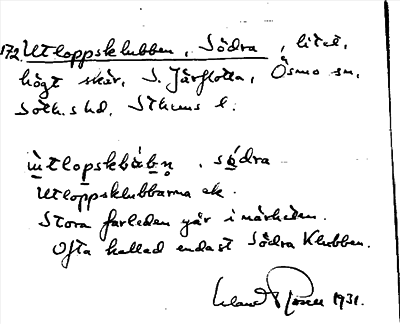 172. Utloppsklubben, Södra, litet,
högt skär, S. Järflotta, Ösmo sn,
Soth. shd, Sthms l.
ùtlopskbàbṇ, sǿdra
Utloppsklubbarna ek.
Stora farleden går i närheten.
Ofta kallad endast Södra Klubben.
1931.